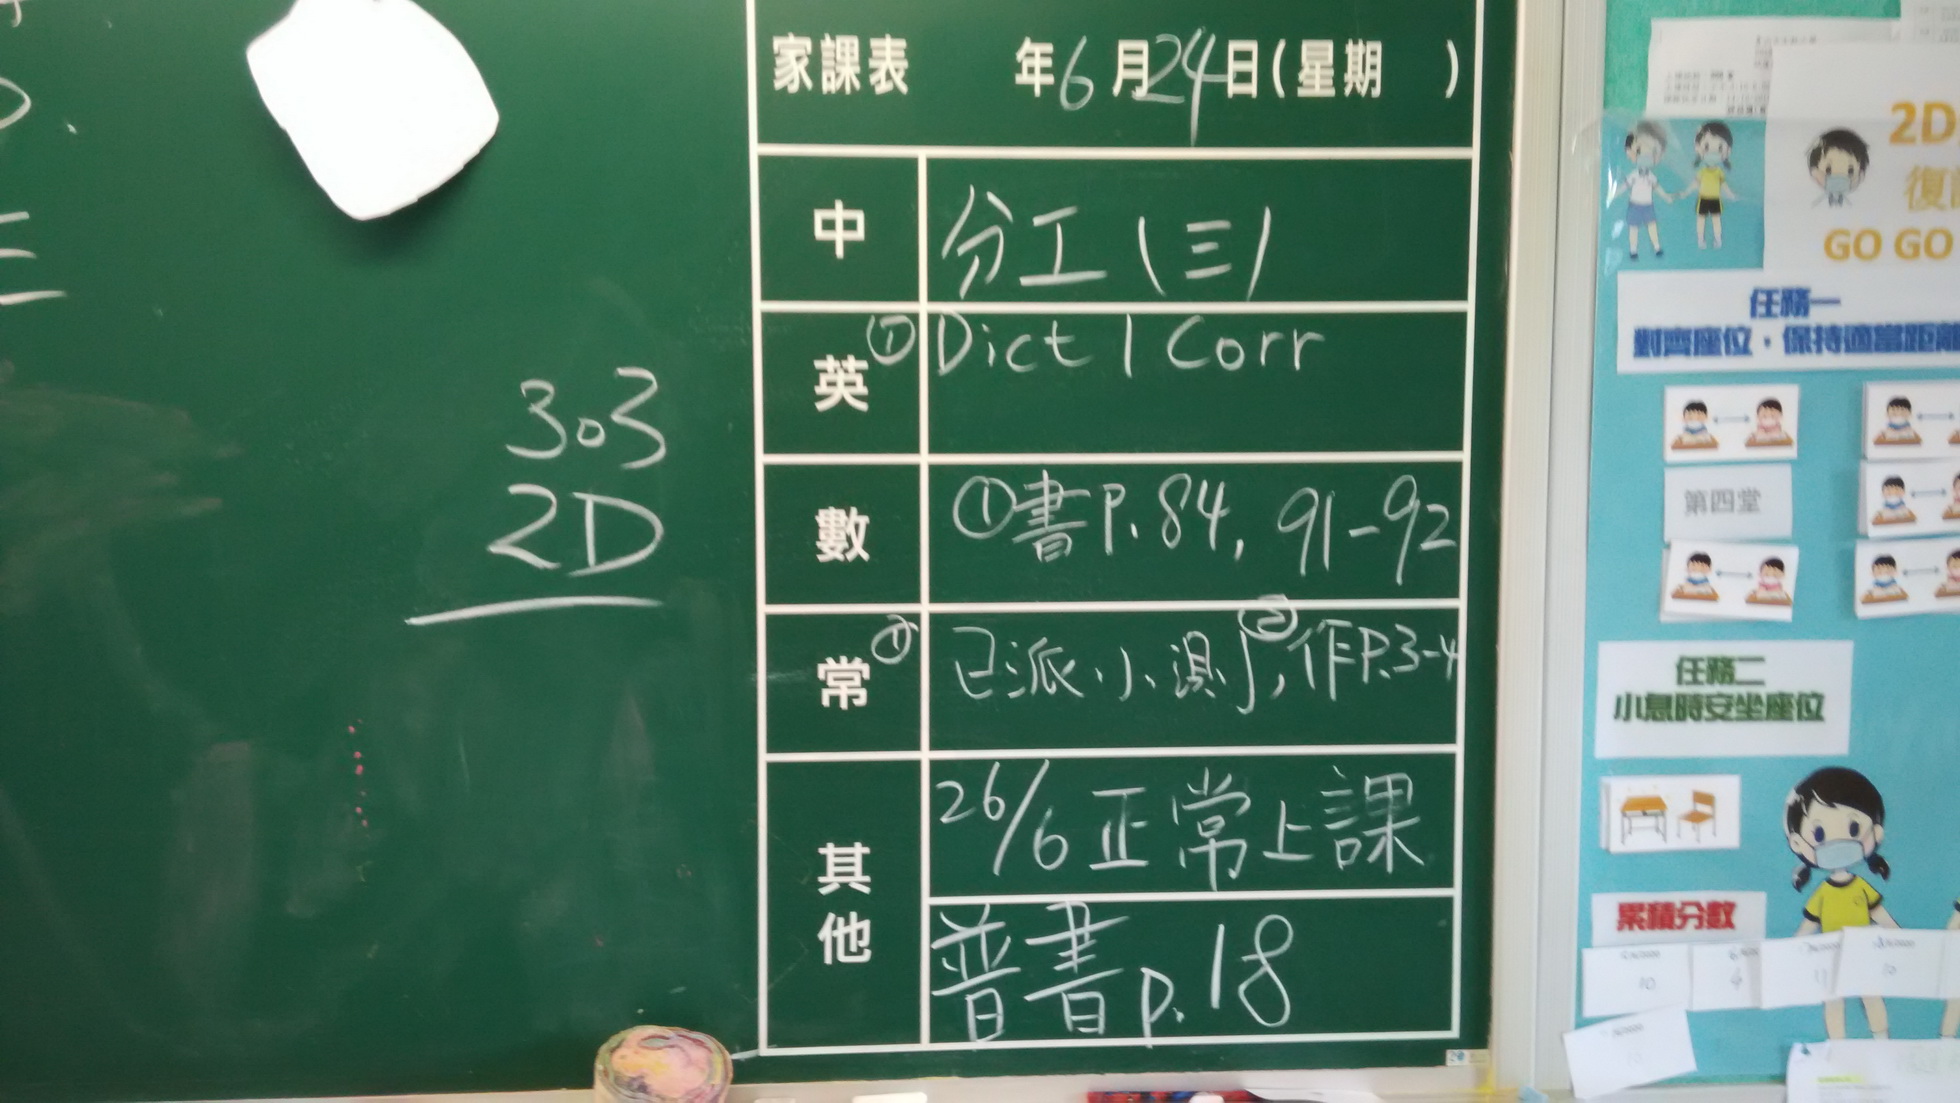 303
2D
家課表 年6月24日(星期 )
中 分工(三)
英 ①Dict 1 Corr
數 ①書P.84, 91-92
常 ①已派小測, ②作P.3-4
其他 26/6 正常上課
普書p.18
2D
GO GO
任務一
對齊座位・保持適當距離
第四堂
任務二
小息時安坐座位
累積分數